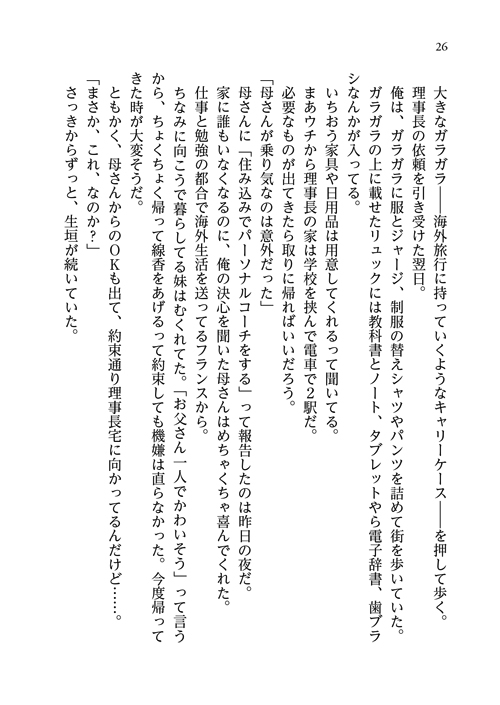 26
大きなガラガラ――海外旅行に持っていくようなキャリーケース――を押して歩く。
理事長の依頼を引き受けた翌日。
俺は、ガラガラに服とジャージ、制服の替えシャツやパンツを詰めて街を歩いていた。
ガラガラの上に載せたリュックには教科書とノート、タブレットやら電子辞書、歯ブラ
シなんかが入ってる。
いちおう家具や日用品は用意してくれるって聞いてる。
まあウチから理事長の家は学校を挟んで電車で2駅だ。
必要なものが出てきたら取りに帰ればいいだろう。
「母さんが乗り気なのは意外だった」
母さんに「住み込みでパーソナルコーチをする」って報告したのは昨日の夜だ。
家に誰もいなくなるのに、俺の決心を聞いた母さんはめちゃくちゃ喜んでくれた。
仕事と勉強の都合で海外生活を送ってるフランスから。
ちなみに向こうで暮らしてる妹はむくれてた。「お父さん一人でかわいそう」って言う
から、ちょくちょく帰って線香をあげるって約束しても機嫌は直らなかった。今度帰って
きた時が大変そうだ。
ともかく、母さんからのOKも出て、約束通り理事長宅に向かってるんだけど……。
「まさか、これ、なのか？」
さっきからずっと、生垣が続いていた。